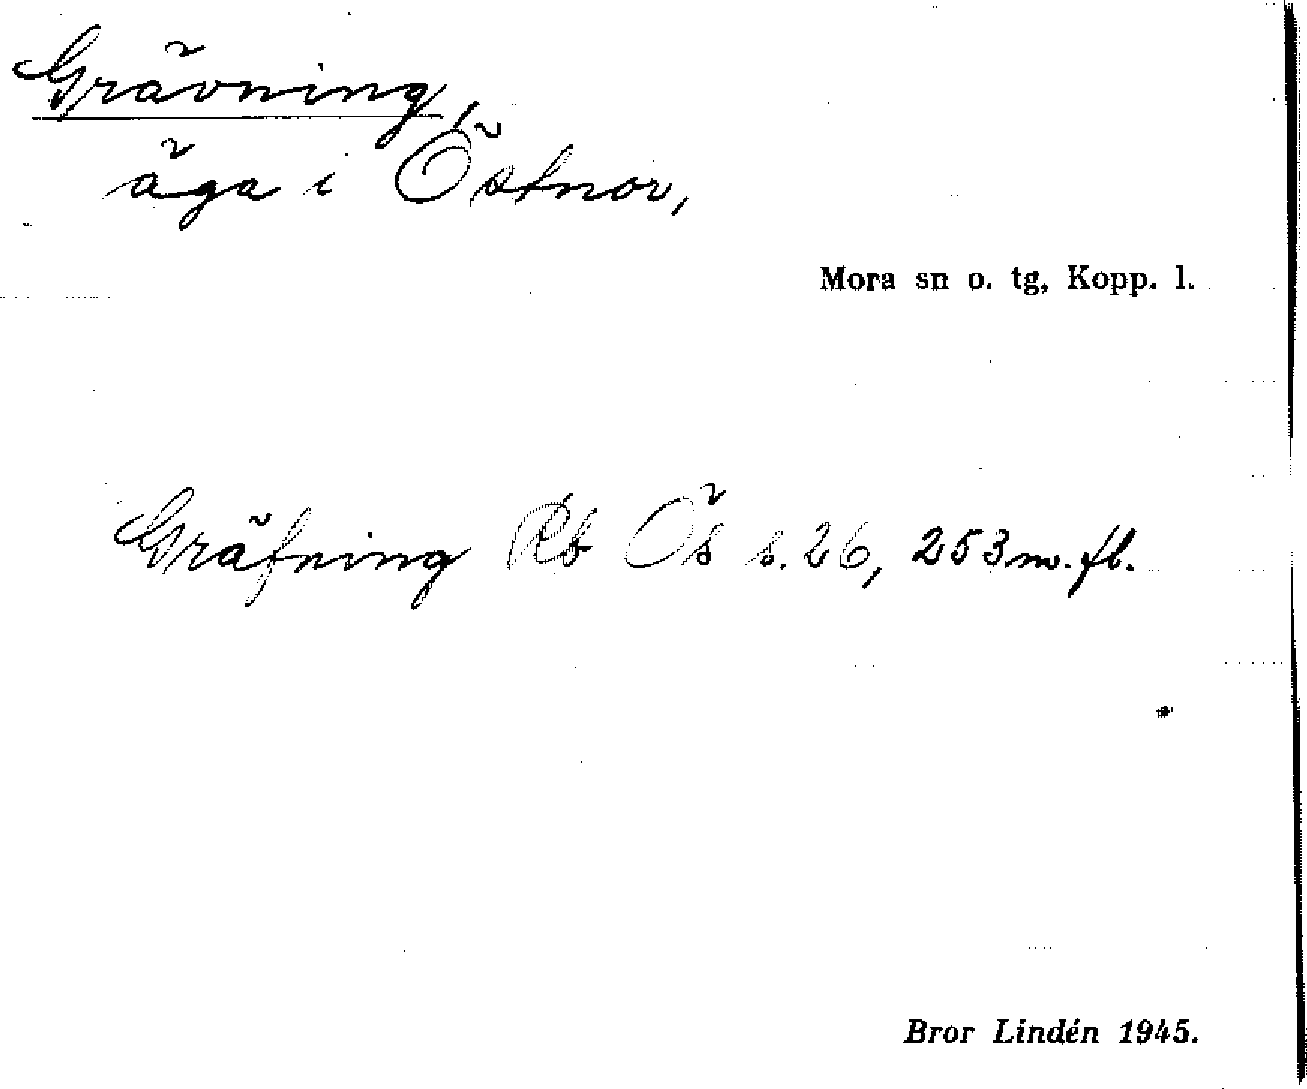 Grävning,
äga i Östnor,
Mora sn o. tg, Kopp. l.
Gräfning Rb Ös s. 26, 253 m. fl.
Bror Lindén 1945.